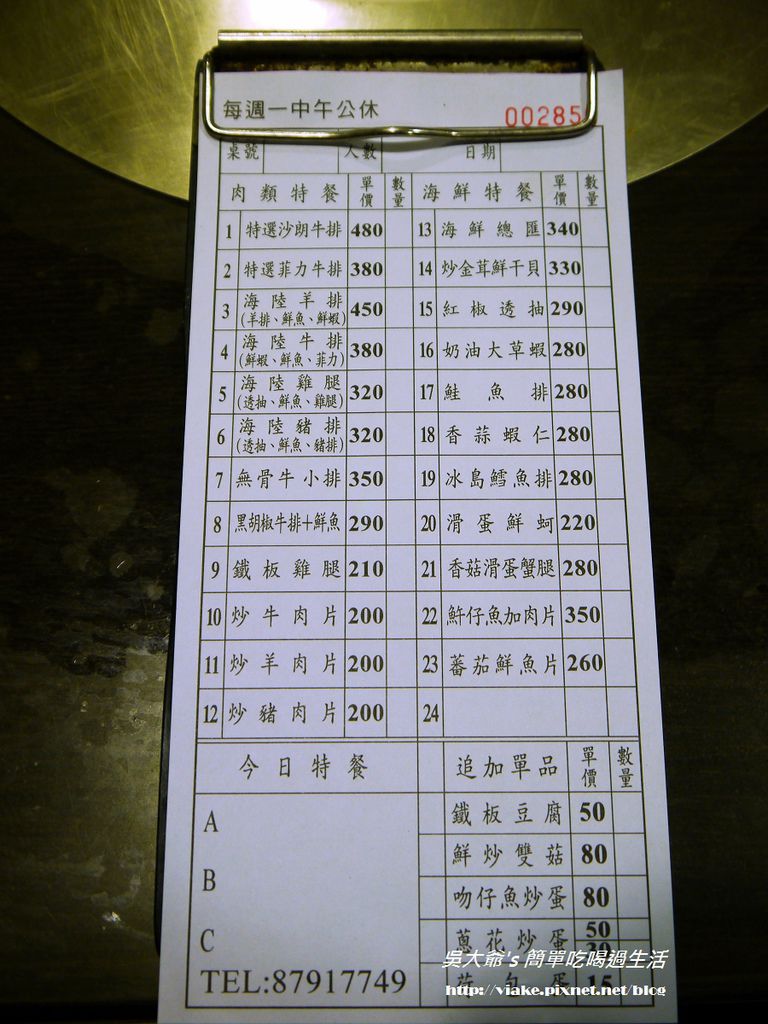 每週一中午公休
00285
桌號 人數 日期
肉類特餐 單價 數量 海鮮特餐 單價 數量
1 特選沙朗牛排 480 13 海鮮總匯 340
2 特選菲力牛排 380 14 炒金茸鮮干貝 330
3 海陸羊排 (羊排、鮮魚、鮮蝦) 450 15 紅椒透抽 290
4 海陸牛排 (鮮蝦、鮮魚、菲力) 380 16 奶油大草蝦 280
5 海陸雞腿 (透抽、鮮魚、雞腿) 320 17 鮭魚排 280
6 海陸豬排 (透抽、鮮魚、豬排) 320 18 香蒜蝦仁 280
7 無骨牛小排 350 19 冰島鱈魚排 280
8 黑胡椒牛排+鮮魚 290 20 滑蛋鮮蚵 220
9 鐵板雞腿 210 21 香菇滑蛋蟹腿 280
10 炒牛肉片 200 22 魽仔魚加肉片 350
11 炒羊肉片 200 23 蕃茄鮮魚片 260
12 炒豬肉片 200 24
今日特餐 追加單品 單價 數量
A 鐵板豆腐 50
鮮炒雙菇 80
B 吻仔魚炒蛋 80
C 蔥花炒蛋 50 30
TEL:87917749 荷包蛋 15
吳大爺's 簡單吃喝過生活
http://viake.pixnet.net/blog